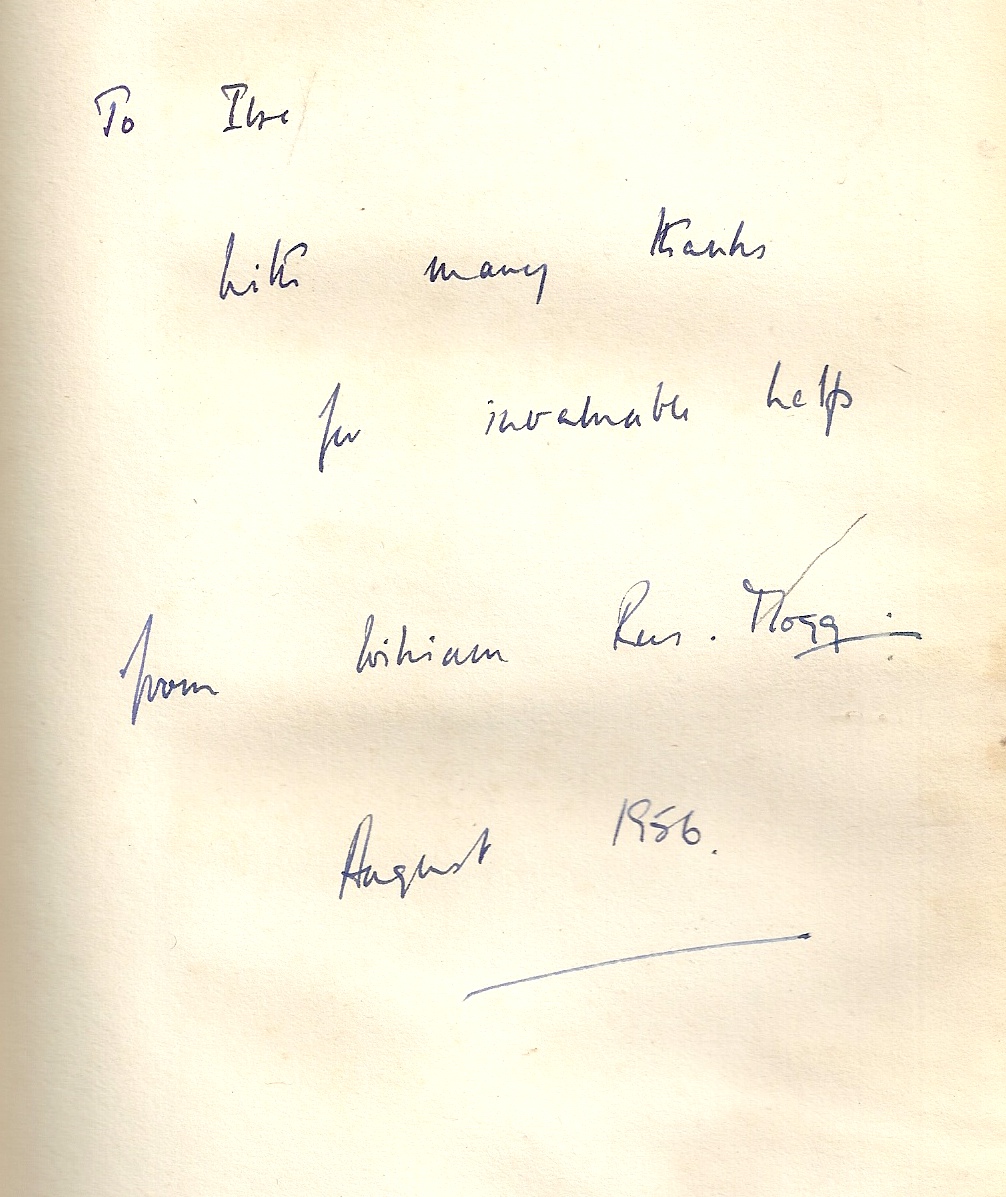 To Ilse
with many thanks
for invaluable help
from William Rees-Mogg.
August 1956.